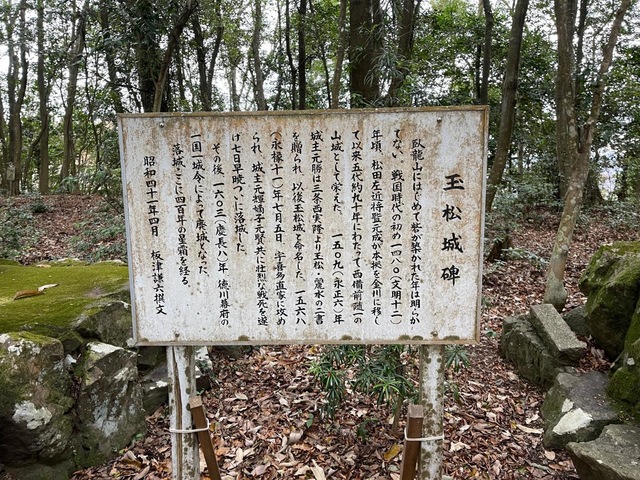 玉松城碑
臥龍山にはじめて砦が築かれた年は明らか
でない。戦国時代の初め一四八〇(文明十二)
年頃、松田左近将監元成が本拠を金川に移し
て以来五代約九十年にわたって西備前随一の
山城として栄えた。一五〇九(永正六)年
城主元勝は三条西実隆より玉松・麗水の二書
を贈られ、以後玉松城と命名した。一五六八
(永禄十一)年七月五日、宇喜多直家に攻め
られ、城主元輝
子元賢共に壮烈な戦死を遂
げ七日早暁ついに落城した。
その後、一六〇三(慶長八)年 徳川幕府の
一国一城令によって廃城となった。
落城、ここに四百年の星霜を経る。
昭和四十二年四月 板津謙六撰文